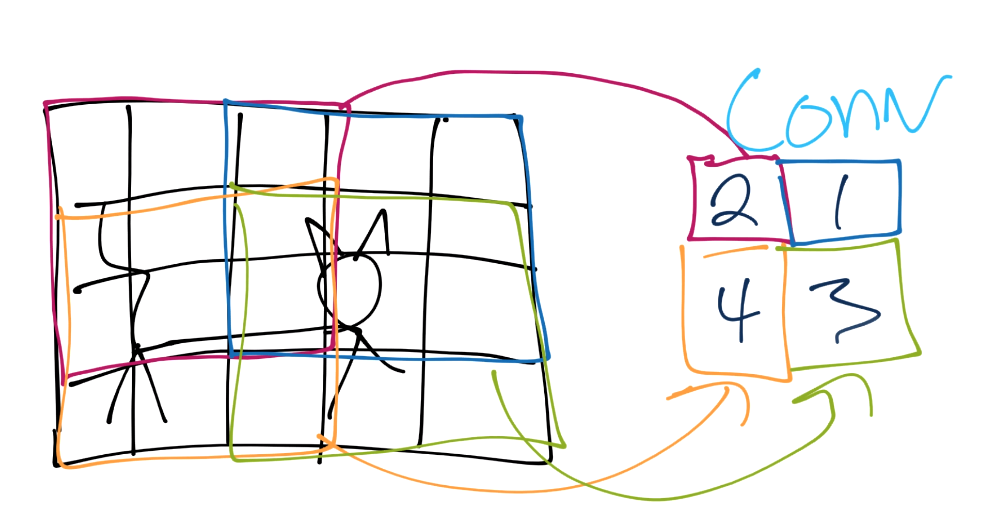 Conv
2 1
4 3